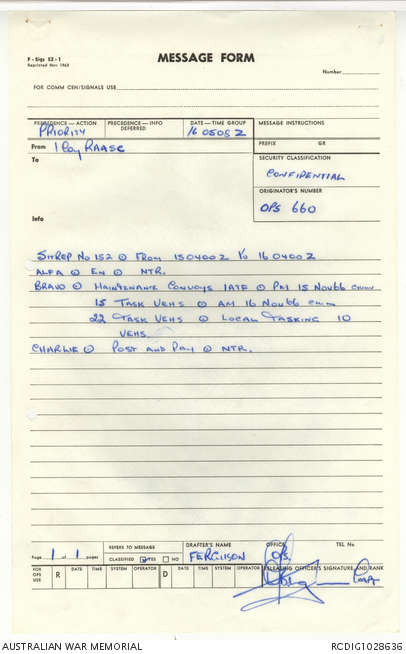 F - Sigs 52 - 1
Reprinted Nov 1963
MESSAGE FORM
Number
FOR COMM CEN/SIGNALS USE
PRECEDENCE — ACTION
PRIORITY
PRECEDENCE — INFO
DEFERRED
DATE — TIME GROUP
160505Z
MESSAGE INSTRUCTIONS
From 1 Coy RAASC
PREFIX GR
To
SECURITY CLASSIFICATION
CONFIDENTIAL
ORIGINATOR'S NUMBER
OPS 660
Info
SITREP No 152 ⊙ FROM 150400Z TO 160400Z
ALFA ⊙ EN ⊙ NTR.
BRAVO ⊙ MAINTENANCE CONVOYS 1ATF ⊙ PM 15 NOV66 cmm
15 TASK VEHS ⊙ AM 16 NOV66 cmm
22 TASK VEHS ⊙ LOCAL TASKING 10
VEHS.
CHARLIE ⊙ POST AND PAY ⊙ NTR.
Page 1 of 1 pages
REFERS TO MESSAGE
CLASSIFIED YES NO
DRAFTER'S NAME
FERGUSON
OFFICE
OPS.
TEL No.
OPS
USE
R DATE TIME SYSTEM OPERATOR D DATE TIME SYSTEM OPERATOR
RELEASING OFFICER'S SIGNATURE AND RANK
Capt
AUSTRALIAN WAR MEMORIAL
RCDIG1028636